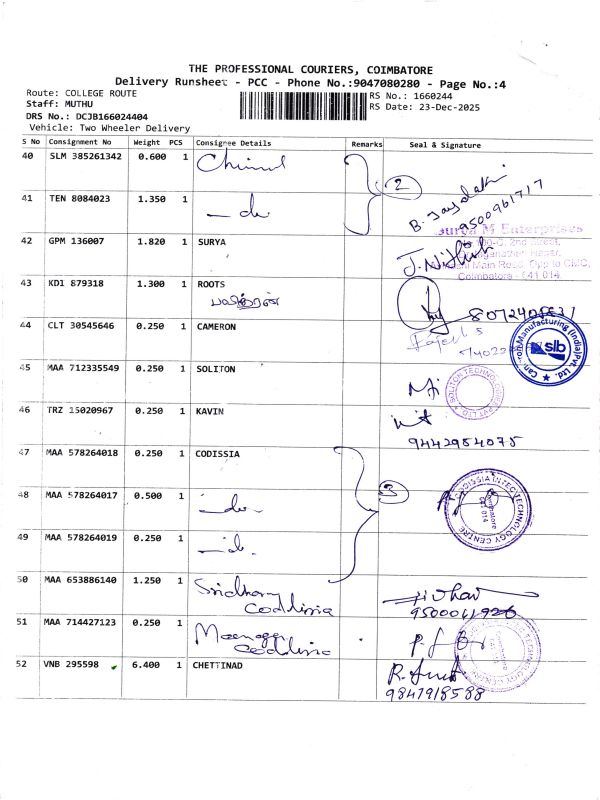 THE PROFESSIONAL COURIERS, COIMBATORE
Delivery Runsheet - PCC - Phone No.:9047080280 - Page No.:4
Route: COLLEGE ROUTE
RS No.: 1660244
Staff: MUTHU
RS Date: 23-Dec-2025
DRS No.: DCJB166024404
Vehicle: Two Wheeler Delivery
S No Consignment No Weight PCS Consignee Details Remarks Seal & Signature
40 SLM 385261342 0.600 1 2
B. Jayalakshmi
9500961717
41 TEN 8084023 1.350 1 — do
Surya M Enterprises
2nd Street,
Main Road, Opp to CMC,
Coimbatore - 641 014.
42 GPM 136007 1.820 1 SURYA
J. Nithish
43 KD1 879318 1.300 1 ROOTS
44 CLT 30545646 0.250 1 CAMERON
Rajesh S
Cameron Manufacturing (India) Pvt. Ltd.
slb
45 MAA 712335549 0.250 1 SOLITON
SOLITON TECHNOLOGIES PVT LTD
46 TRZ 15020967 0.250 1 KAVIN
9442984075
47 MAA 578264018 0.250 1 CODISSIA
48 MAA 578264017 0.500 1 — do — 3
CODISSIA INFOTECHNOLOGY CENTRE
Coimbatore
641 014
49 MAA 578264019 0.250 1 — do.
50 MAA 653886140 1.250 1 Sridharan
Codissia
9500041926
51 MAA 714427123 0.250 1 Manager
Codissia
52 VNB 295598 6.400 1 CHETTINAD
9847918588